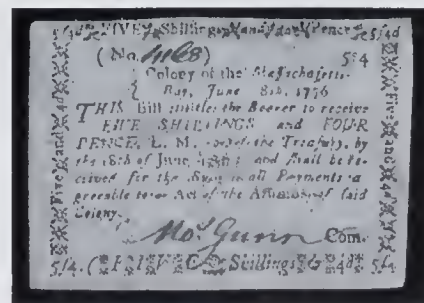 5/4d FIVE Shillings and four Pence 5/4d
(No. ) 5s4
Colony of the Massachusetts
Bay, June 8th, 1776
THIS Bill entitles the Bearer to receive
FIVE SHILLINGS and FOUR
PENCE, L. M. out of the Treasury, by
the 18th of June, and shall be re-
ceived for the Sum in all Payments a-
greeable to an Act of the Assembly of said
Colony.
Com.
5/4. (FIVE Shillings & 4d) 5/4
Five and 4d
Five and 4